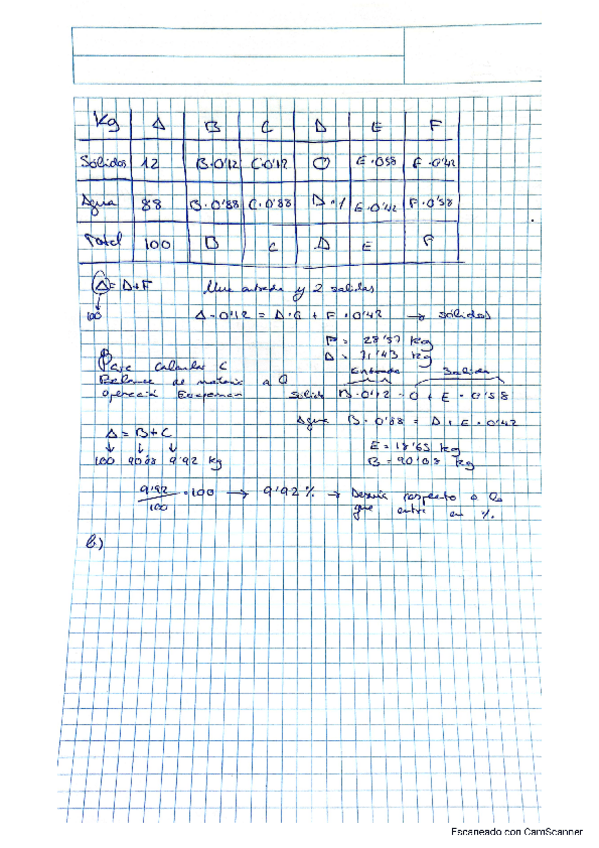 Kg A B C D E F
Sólidos 12 B·0'12 C·0'12 0 E·0'58 F·0'42
Agua 88 B·0'88 C·0'88 D·1 E·0'42 F·0'58
Total 100 B C D E F
A = D+F Una entrada y 2 salidas
100 A·0'12 = D·0 + F·0'42 → sólidos
F = 28'57 Kg
D = 71'43 Kg
Para calcular C Entrada Salida
Balance de materia a la
operación Sólido B·0'12 = 0 + E·0'58
Agua B·0'88 = D + E·0'42
A = B+C
E = 18'63 kg
100 90'08 9'92 kg B = 90'08 kg
9'92/100 ·100 → 9'92% → respecto a lo
que entra en %.
b)
Escaneado con CamScanner